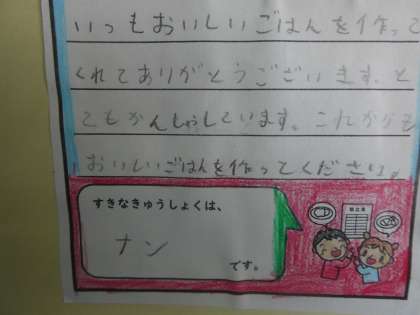 いつもおいしいごはんを作って
くれてありがとうございます。と
てもかんしゃしています。これからも
おいしいごはんを作ってください。
すきなきゅうしょくは、
ナン
です。